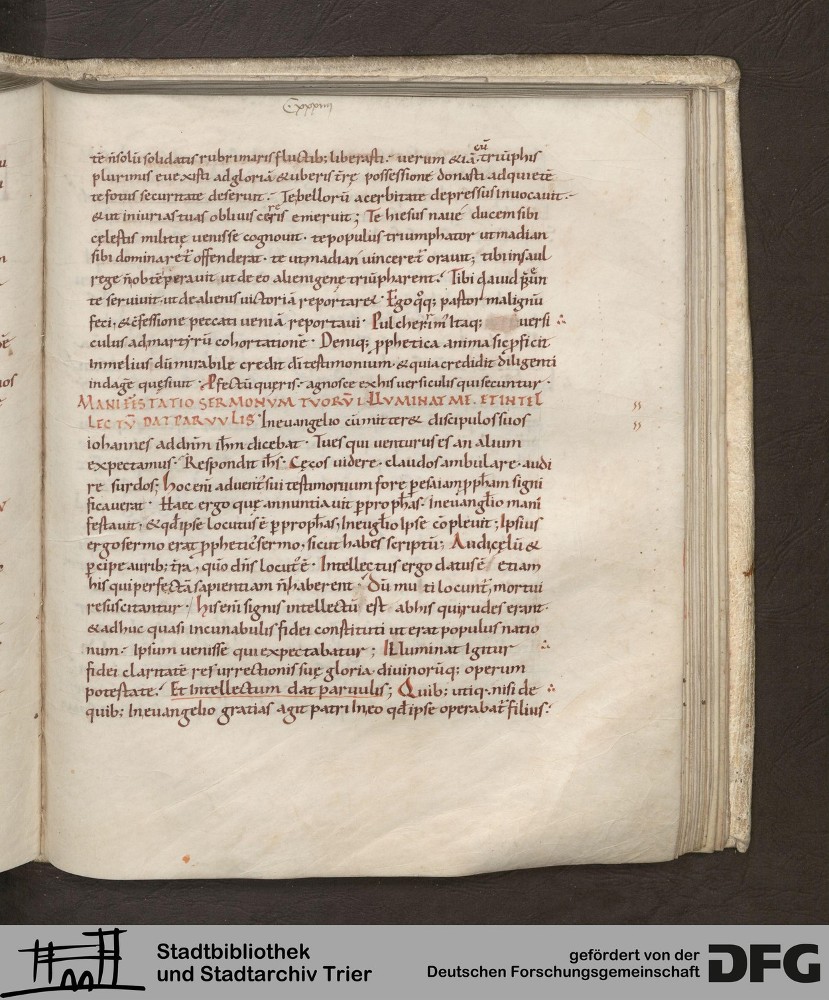 Cxxxiiii
tē ñ solū solidatis rubri maris fluctib; liberasti. verum & iā cū triūphis
plurimis evexisti ad gloriā & uberis tr̄ę possessionē donasti adquietē
te fotus securitate deseruit. Te bellorū acerbitate depressus invocavit.
& ut iniurias tuas oblivisceris emeruit; Te hiesus naue ducem sibi
cęlestis militię venisse cognouit. te populus triumphator ut madian
sibi dominaret̄ offenderat. te ut madian vinceret oravit; tibi in saul
rege ñ obtēperavit ut de eo alienigenę triūpharent. Tibi david
te servivit. ut de alienis victoriā reportar&. Ego qq; pastor malignū
feci, & cfessione peccati veniā reportavi. Pulcherrim Itaq; versi
culus ad martyrū cohortationē. Deniq; pphetica anima sic pficit
in melius dū mirabile credit dī testimonium. & quia credidit diligenti
indage quęsivit. Pfectū quęris. agnosce ex his versiculis qui secuntur.
MANIFESTATIO SERMONVM TVORV̄ ILLVMINAT ME. ET INTEL
LECTV̄ DAT PARVVLIS In euangelio cū mitter& discipulos suos
iohannes ad dn̄m ih̄m dicebat. Tu es qui venturus es an alium
expectamus. Respondit ih̄s. Cęcos videre. claudos ambulare. audi
re surdos; hoc eni advent sui testimonium fore p esaiam ppham signi
ficaverat. Haec ergo quę annuntiavit p prophas. In evanglio mani
festavit. & qđ ipse locutus ē p prophas, In euglio Ipse cōplevit; Ipsius
ergo sermo erat pphetic sermo. sicut habes scriptū; Audi cęlū &
pcipe aurib; tr̄a, quō dn̄s locut ē. Intellectus ergo datus ē etiam
his qui perfectā sapientiam ñ haberent. Dū mu ti locunt, mortui
resuscitantur. his eni signis intellectū est ab his qui rudes erant.
& adhuc quasi in cunabulis fidei constituti ut erat populus natio
num. Ipsum venisse qui expectabatur; ILluminat Igitur
fidei claritatē resurrectionis suę gloria. divinorūq; operum
potestate. Et Intellectum dat parvulis; Quib; utiq. nisi de
quib; In evangelio gratias agit patri In eo qđ ipse operabat̄ filius.
Stadtbibliothek
und Stadtarchiv Trier
gefördert von der
Deutschen Forschungsgemeinschaft
DFG